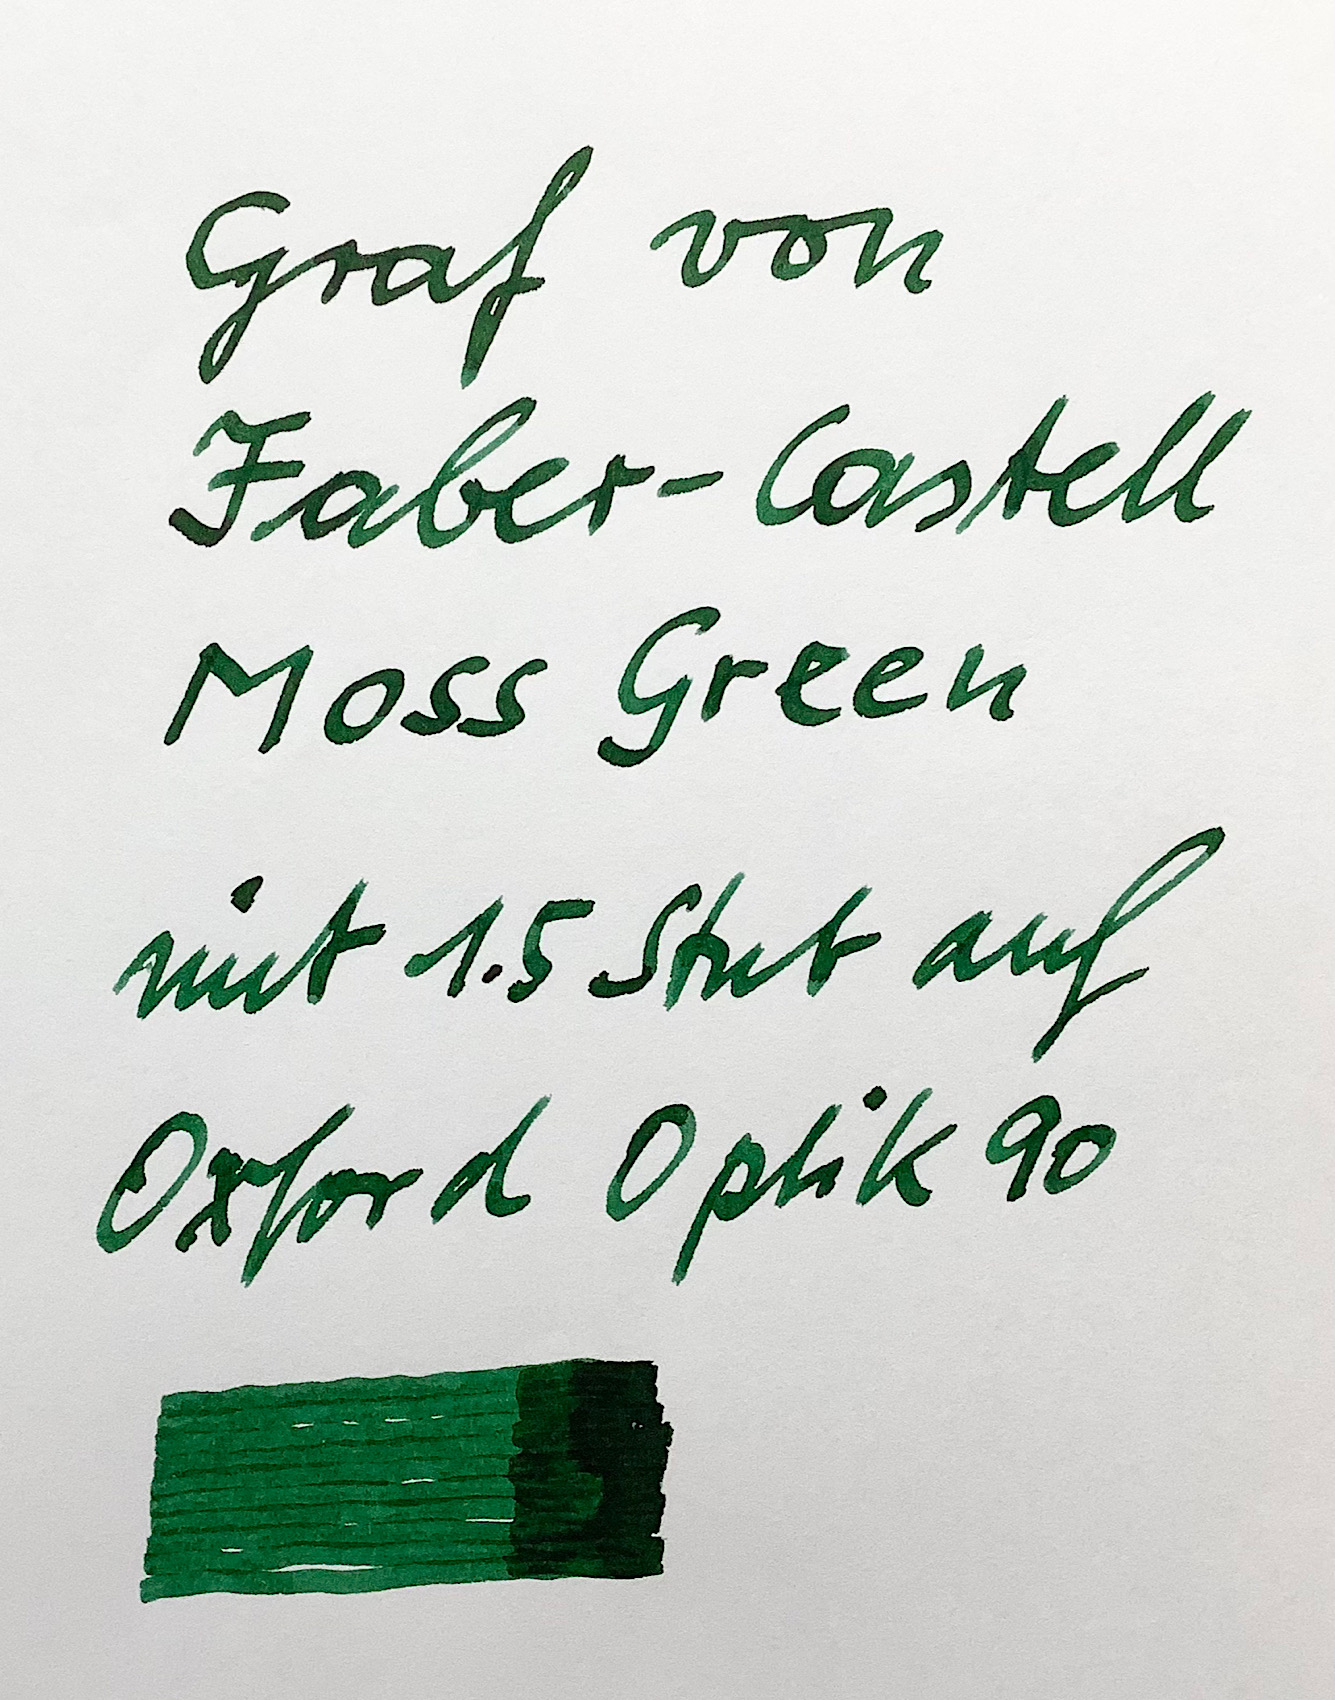 Graf von
Faber-Castell
Moss Green
mit 1.5 Stut auf
Oxford Optik 90